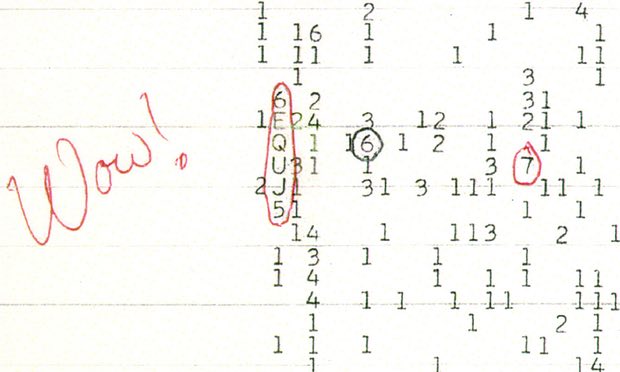 1 2 1 4
1 16 1 1 1
1 11 1 1 11
1 3 1
6 2 31
1 E 24 3 12 1 21 1
Q 1 16 1 2 1 1
Wow!
U 31 1 3 7 1
2 J1 31 3 111 11 1
51 1 1
14 1 113 2 1
1 3 1 1 1
1 4 1 1 1 11
4 1 1 1 11 111
1 1 2 1
1 1 1 11 1
1 1 14